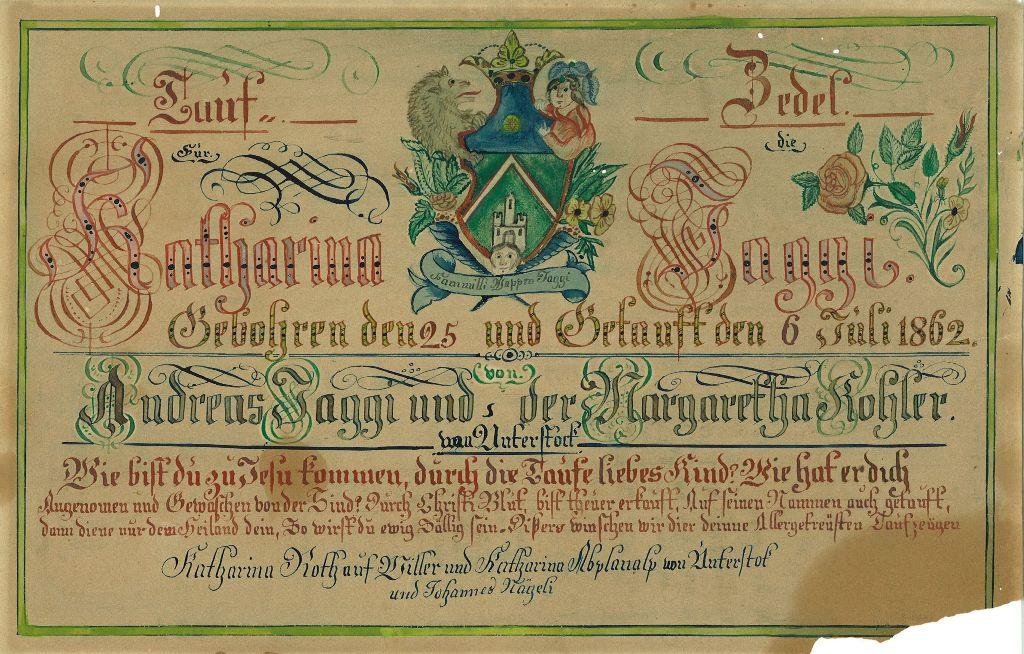 Tauf „ Zedel.
Für die
Katharina Jaggi.
Fammilli Wappen Jaggi
Gebohren den 25 und Getauft den 6 Jüli 1862.
von
Andreas Jaggi und, der Margaretha Kohler.
von Unterstock
Wie bist dü zü Jesu kommen, dürch die Taufe liebes Kind? Wie hat er dich
Angenomen und Gewaschen von der Sind? Durch Christi Blut, bist theuer erkauft, Auf seinen Nammen auch getauft,
dann diene nur dem Heiland dein, So wirst du ewig Sällig sein. Dißers winschen wir dier deinne Allergetreüsten Taufzeügen
Katharina Roth auf Willer und Katharina Abplanalp von Unterstok
und Johannes Nägeli